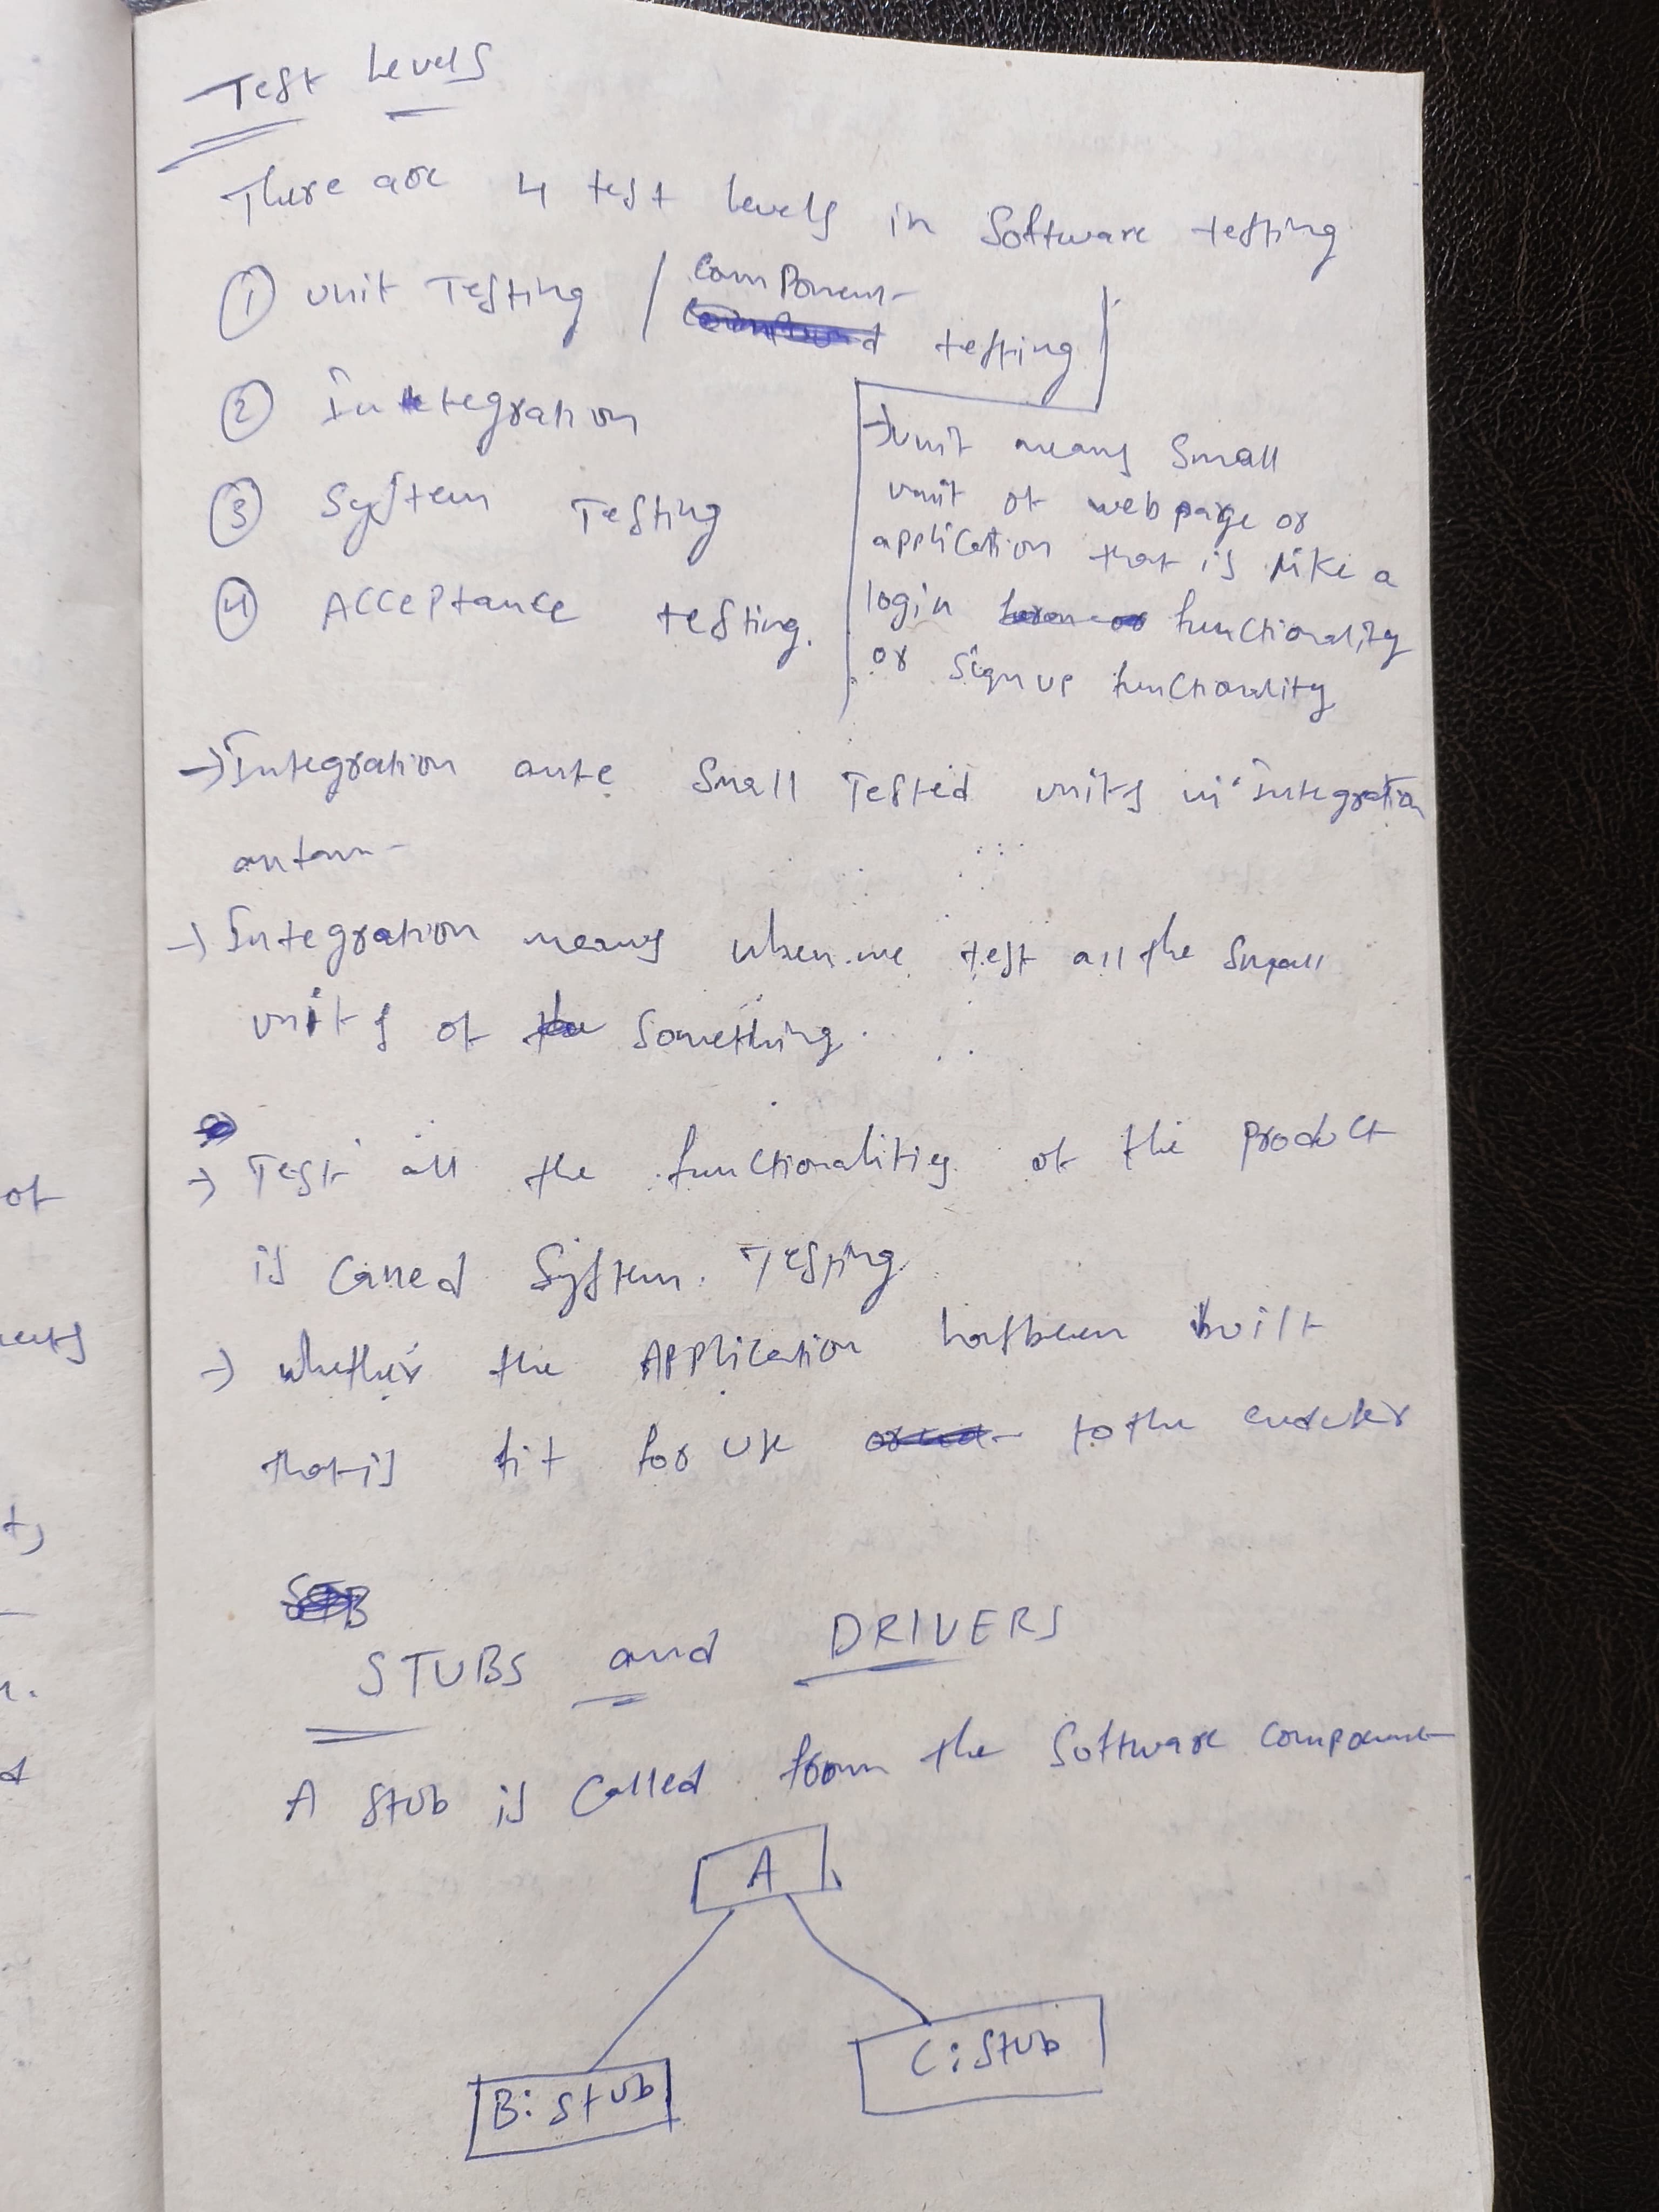 Test Levels
There are 4 test levels in Software testing
① Unit Testing / Component testing
② Integration
③ System Testing
④ Acceptance testing.
→ Unit means Small
unit of web page or
application that is like a
login functionality
or Signup functionality
→ Integration Small Tested units in integration
→ Integration means when we test all the Small
units of Something.
→ Test all the functionalities of the product
is Called System Testing
→ whether the Application has been built
that is fit for use to the enduser
STUBS and DRIVERS
A Stub is Called from the Software component
A
B: Stub
C: Stub
of
t,